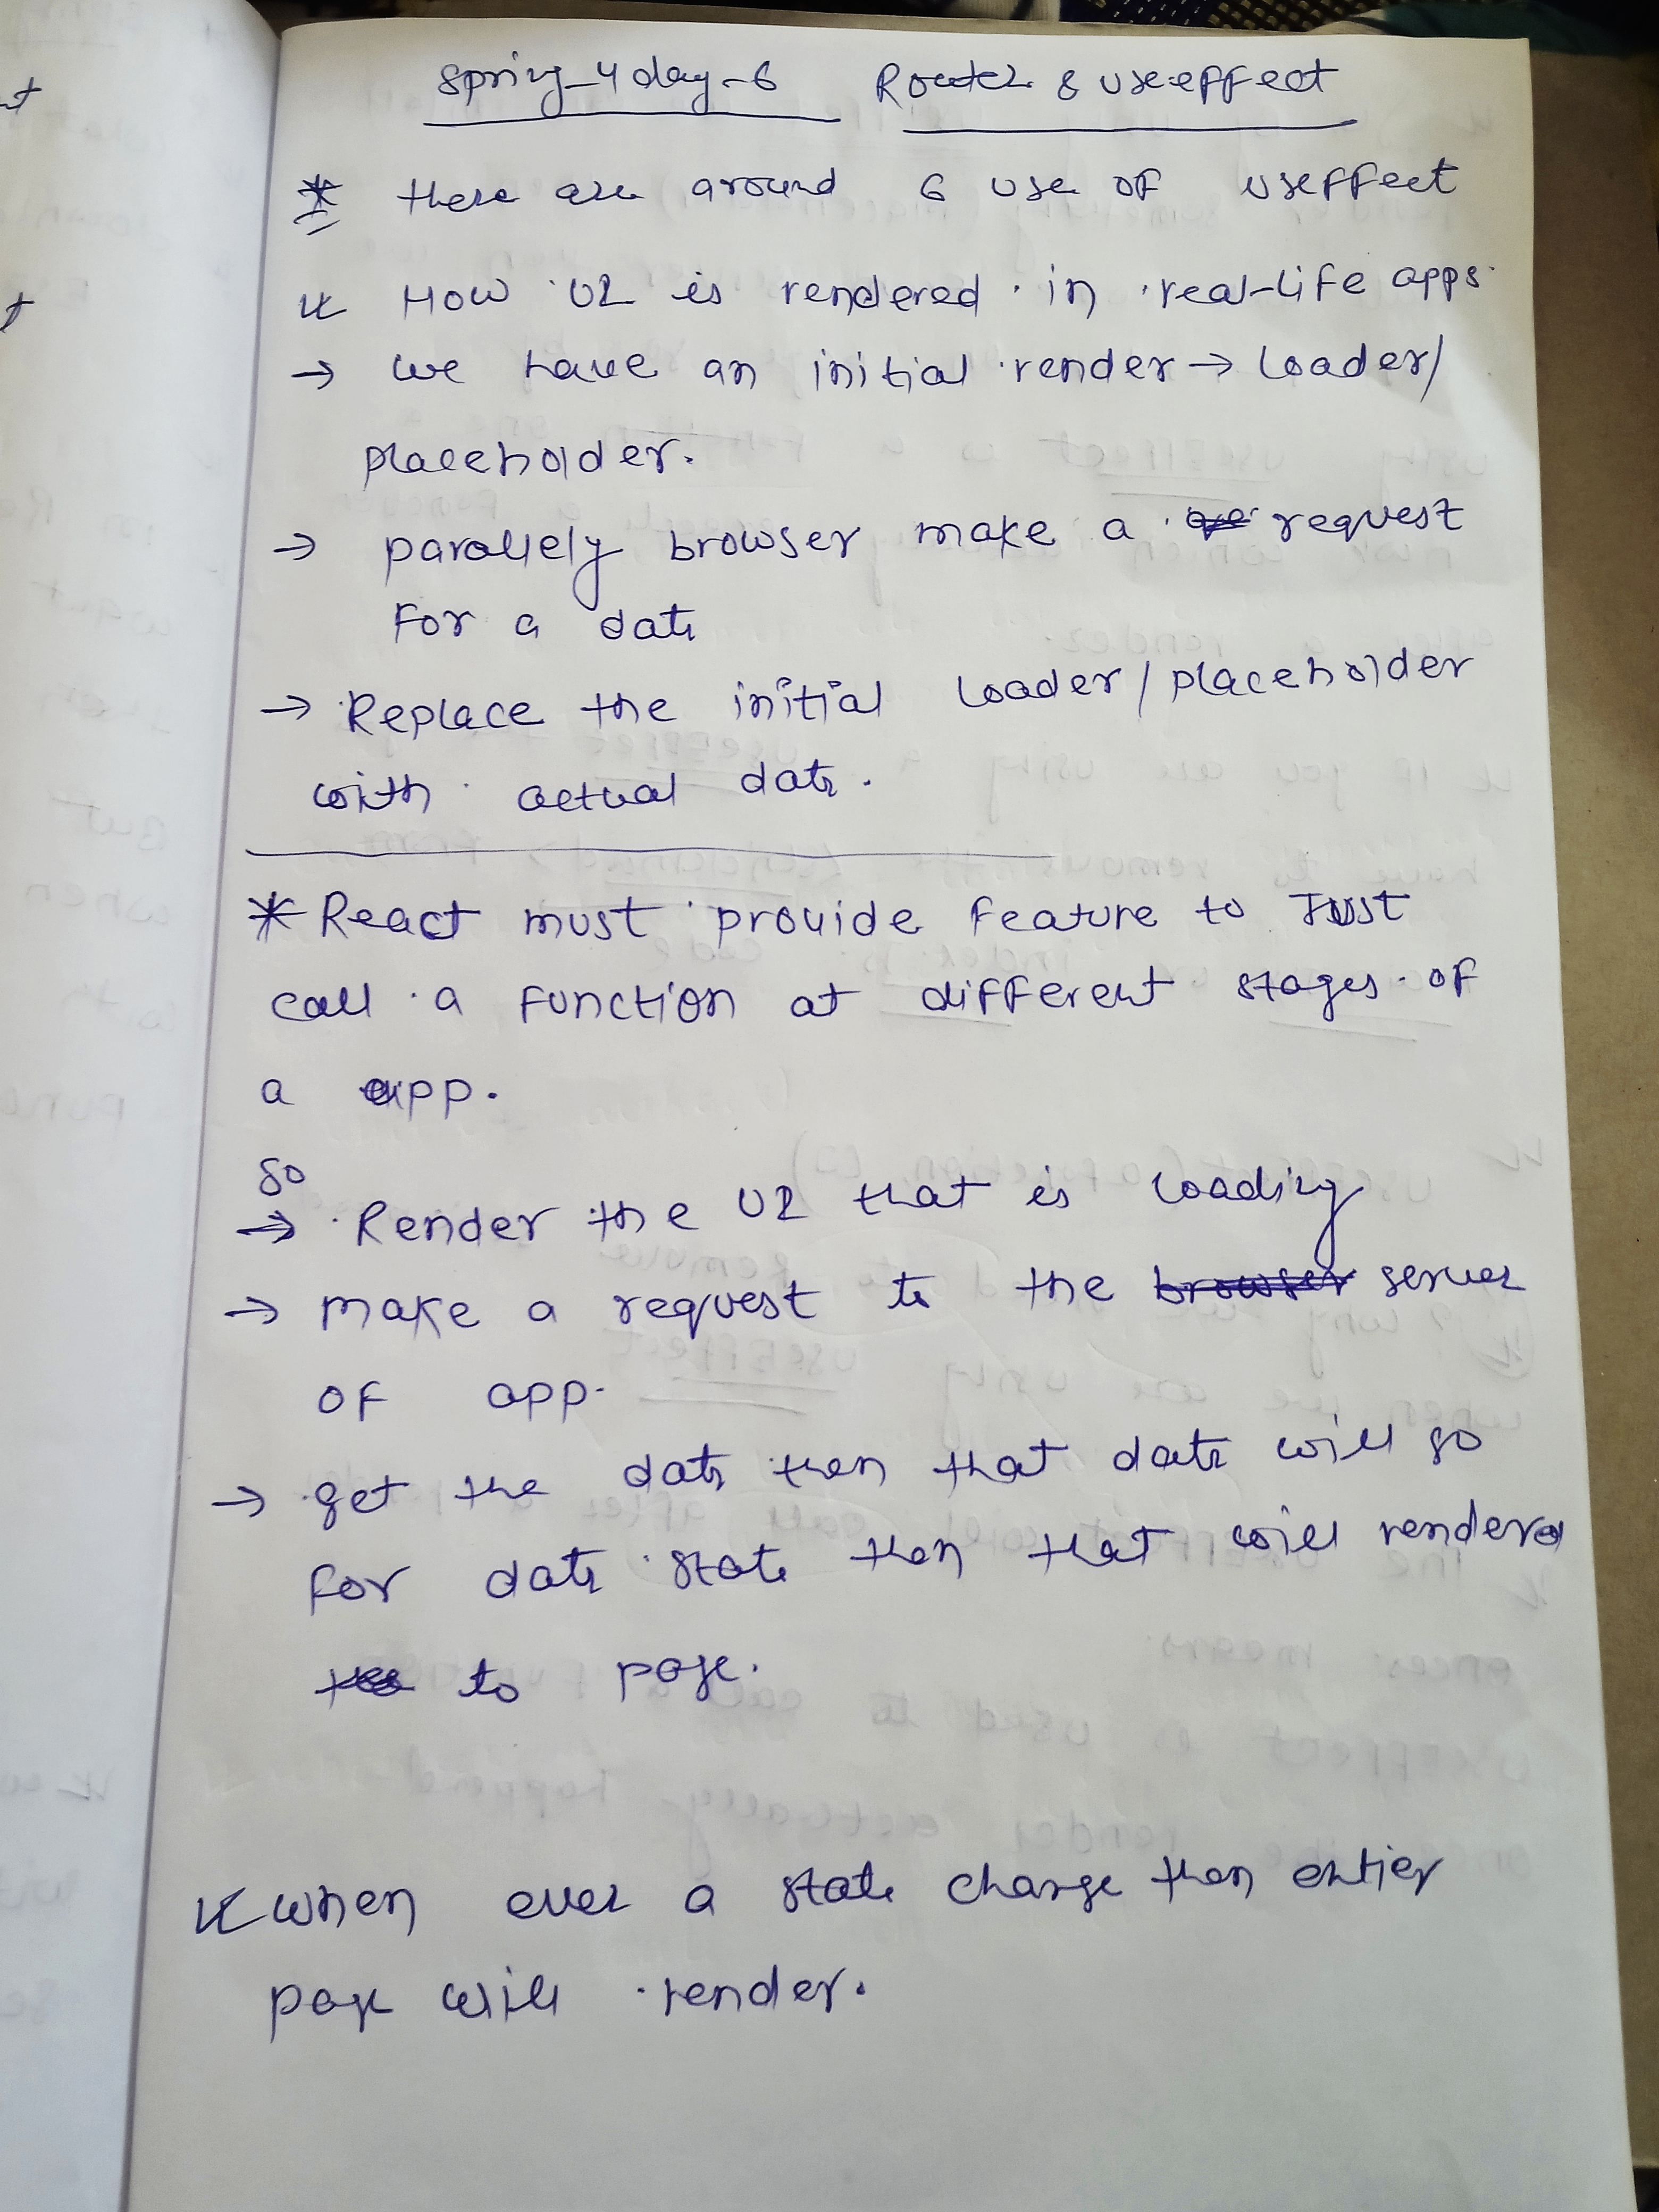 Spring_4 day-6 Router & useeffect
* there are around 6 use of useffect
* How UI is rendered in real-life apps
→ we have an initial render → Loader/
placeholder.
→ parallely browser make a request
for a data
→ Replace the initial Loader/placeholder
with actual data.
* React must provide feature to Just
call a function at different stages of
a app.
so
→ Render the UI that is loading
→ make a request to the browser server
of app.
→ get the data then that data will go
for data state then that will rendered
to page.
* when ever a state change then entier
page will render.